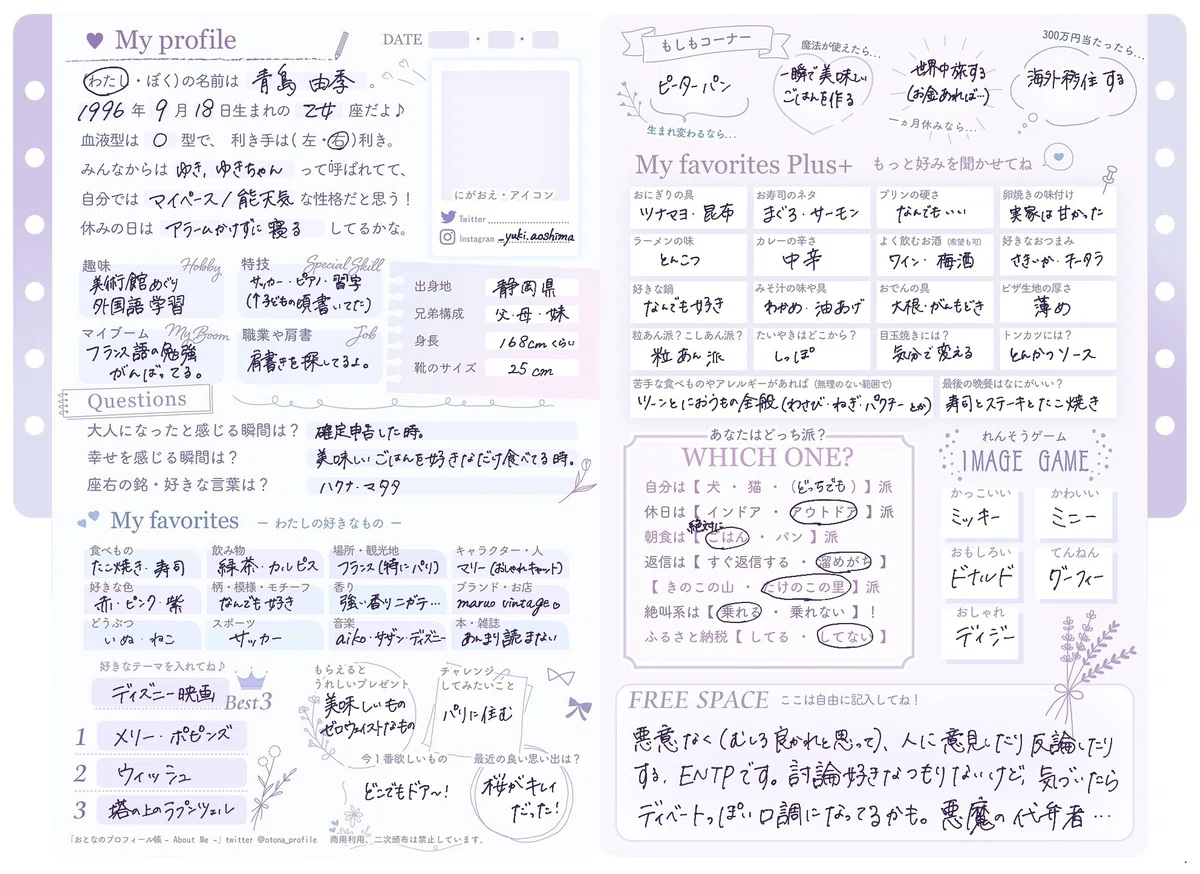 My profile
DATE ・ ・
わたし・ぼく)の名前は 青島 由季 。
1996 年 9 月 18 日生まれの 乙女 座だよ♪
血液型は O 型で、 利き手は( 左・右)利き。
みんなからは ゆき, ゆきちゃん って呼ばれてて、
自分では マイペース / 能天気 な性格だと思う!
休みの日は アラームかけずに寝る してるかな。
にがおえ・アイコン
Twitter
Instagram _yuki.aoshima
趣味 Hobby
美術館めぐり
外国語学習
特技 Special Skill
サッカー・ピアノ・習字
(↑子どもの頃書いてた)
マイブーム My Boom
フランス語の勉強
がんばってる。
職業や肩書 Job
肩書きを探してるよ。
出身地 静岡県
兄弟構成 父・母・妹
身長 168cmくらい
靴のサイズ 25cm
Questions
大人になったと感じる瞬間は? 確定申告した時。
幸せを感じる瞬間は? 美味しいごはんを好きなだけ食べてる時。
座右の銘・好きな言葉は? ハクナ・マタタ
My favorites ー わたしの好きなもの ー
食べもの
たこ焼き・寿司
飲み物
緑茶・カルピス
場所・観光地
フランス(特にパリ)
キャラクター・人
マリー(おしゃれキャット)
好きな色
赤・ピンク・紫
柄・模様・モチーフ
なんでも好き
香り
強い香りニガテ…
ブランド・お店
maruo vintage♡
どうぶつ
いぬ・ねこ
スポーツ
サッカー
音楽
aiko・サザン・ディズニー
本・雑誌
あんまり読まない
好きなテーマを入れてね♪
ディズニー映画
Best3
1 メリー・ポピンズ
2 ウィッシュ
3 塔の上のラプンツェル
もらえると
うれしいプレゼント
美味しいもの
ゼロウェイストなもの
チャレンジ
してみたいこと
パリに住む
今1番欲しいもの
どこでもドア〜!
最近の良い思い出は?
桜がキレイ
だった!
「おとなのプロフィール帳 - About Me -」twitter @otona_profile 商用利用、二次頒布は禁止しています。
もしもコーナー
ピーターパン
生まれ変わるなら…
魔法が使えたら…
一瞬で美味しい
ごはんを作る
世界中旅する
(お金あれば…)
一ヵ月休みなら…
300万円当たったら…
海外移住する
My favorites Plus+ もっと好みを聞かせてね
おにぎりの具
ツナマヨ・昆布
お寿司のネタ
まぐろ・サーモン
プリンの硬さ
なんでもいい
卵焼きの味付け
実家は甘かった
ラーメンの味
とんこつ
カレーの辛さ
中辛
よく飲むお酒(希望も可)
ワイン・梅酒
好きなおつまみ
さきいか・チータラ
好きな鍋
なんでも好き
みそ汁の味や具
わかめ・油あげ
おでんの具
大根・がんもどき
ピザ生地の厚さ
薄め
粒あん派?こしあん派?
粒あん派
たいやきはどこから?
しっぽ
目玉焼きには?
気分で変える
トンカツには?
とんかつソース
苦手な食べものやアレルギーがあれば(無理のない範囲で)
ツーンとにおうもの全般(わさび・ねぎ・パクチーとか)
最後の晩餐はなにがいい?
寿司とステーキとたこ焼き
あなたはどっち派?
WHICH ONE?
自分は【 犬 ・ 猫 ・(どっちでも)】派
休日は【 インドア ・ アウトドア 】派
絶対に
朝食は【 ごはん ・ パン 】派
返信は【 すぐ返信する ・ 溜めがち 】
【 きのこの山 ・ たけのこの里 】派
絶叫系は【 乗れる ・ 乗れない 】!
ふるさと納税【 してる ・ してない 】
れんそうゲーム
IMAGE GAME
かっこいい
ミッキー
かわいい
ミニー
おもしろい
ドナルド
てんねん
グーフィー
おしゃれ
デイジー
FREE SPACE ここは自由に記入してね!
悪意なく(むしろ良かれと思って)、人に意見したり反論したり
する、ENTPです。討論好きなつもりないけど、気づいたら
ディベートっぽい口調になってるかも。悪魔の代弁者…